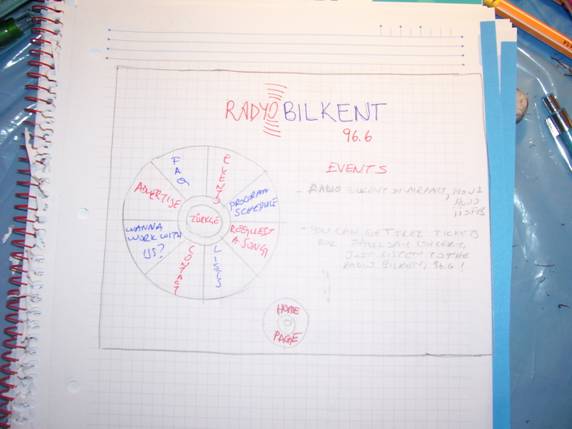 RADYO BILKENT
96.6
FAQ
EVENTS
PROGRAM
SCHEDULE
REQUEST
A SONG
LISTS
CONTACT
WANNA
WORK WITH
US?
ADVERTISE
TÜRKÇE
EVENTS
- RADIO BILKENT
- YOU CAN GET FREE TICKETS
FOR
JUST LISTEN TO THE
RADIO BILKENT, 96.6!
HOME
PAGE